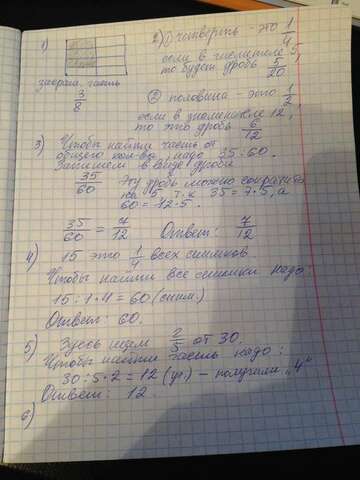 1)
закраш. часть
3/8
2) ① четверть - это 1/4,
если в числителе 5,
то будет дробь 5/20
② половина - это 1/2,
если в знаменателе 12,
то это дробь 6/12
3) Чтобы найти часть от
общего кол-ва, надо 35:60.
Запишем в виде дроби
35/60 Эту дробь можно сократить
на 5, т.к 35 = 7·5, а
60 = 12·5.
35/60 = 7/12 Ответ: 7/12
4) 15 это 1/4 всех снимков.
Чтобы найти все снимки надо:
15:1·4 = 60 (сним.)
Ответ: 60.
5) Здесь ищем 2/5 от 30.
Чтобы найти часть надо:
30:5·2 = 12 (уч.) - получили „4"
Ответ: 12.
6)